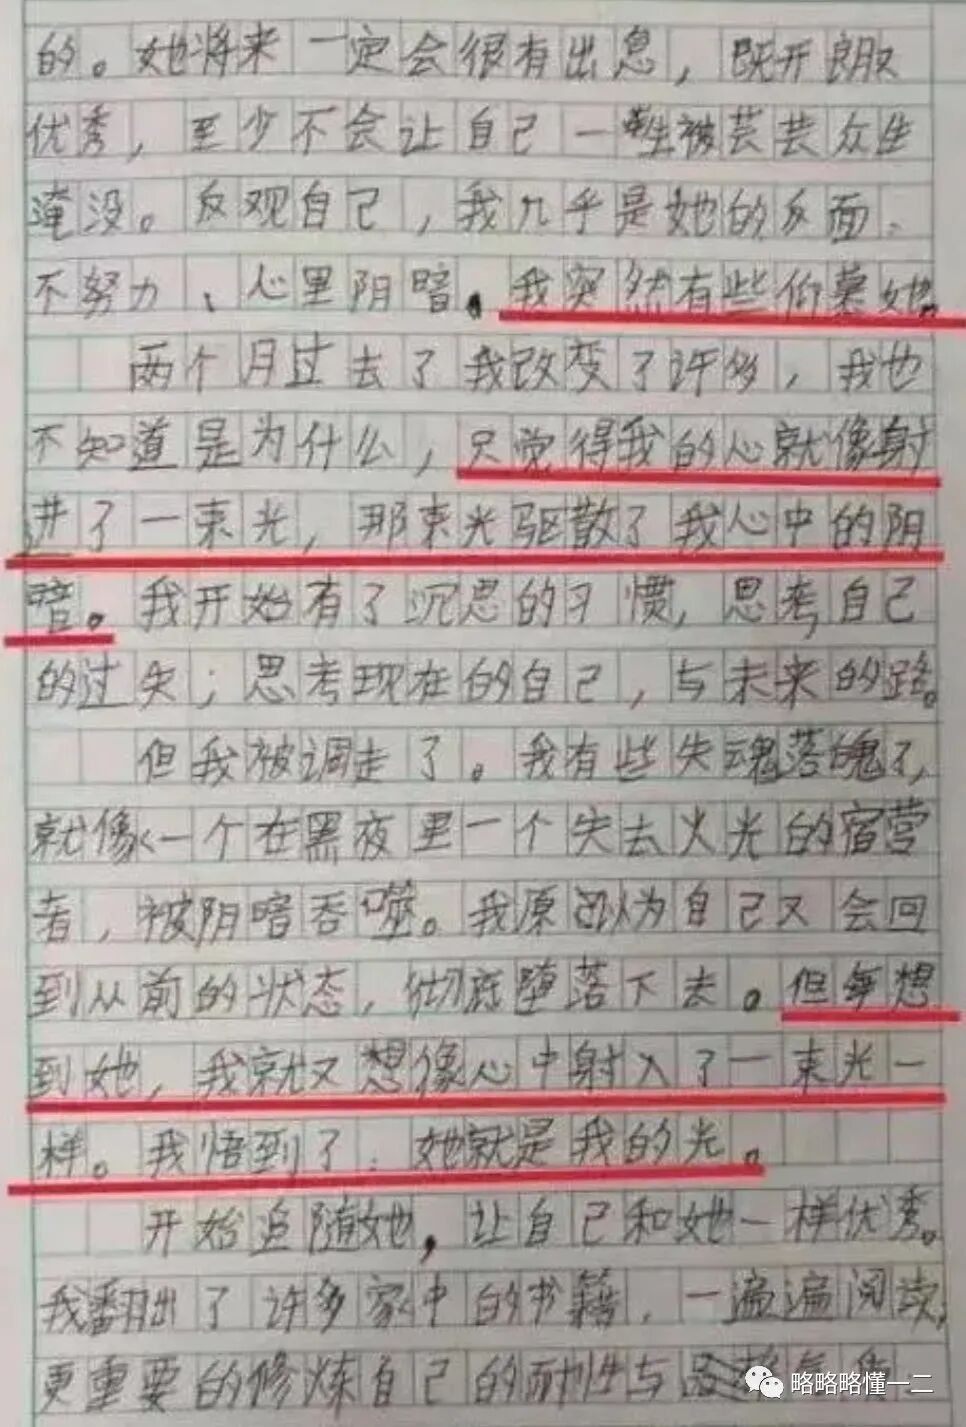 的。她将来一定会很有出息，既开朗又
优秀，至少不会让自己一生被芸芸众生
淹没。反观自己，我几乎是她的反面：
不努力、心里阴暗。我突然有些仰慕她。
两个月过去了我改变了许多，我也
不知道是为什么，只觉得我的心就像射
进了一束光，那束光驱散了我心中的阴
暗。我开始有了沉思的习惯，思考自己
的过失；思考现在的自己，与未来的路。
但我被调走了。我有些失魂落魄了，
就像一个在黑夜里一个失去火光的宿营
者，被阴暗吞噬。我原以为自己又会回
到从前的状态，彻底堕落下去。但每想
到她，我就又想像心中射入了一束光一
样。我悟到了：她就是我的光。
开始追随她，让自己和她一样优秀。
我翻出了许多家中的书籍，一遍遍阅读，
更重要的修炼自己的耐性与
略略略懂一二